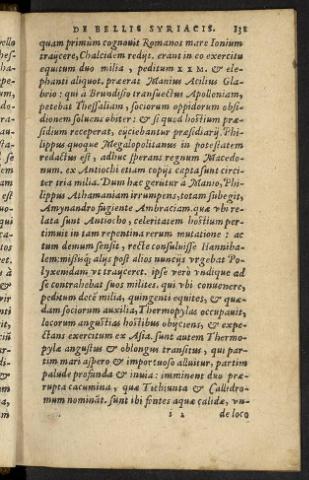 DE BELLIS SYRIACIS. 138
quam primùm cognouit Romanos mare Ionium
traijcere, Chalcidem redijt. erant in eo exercitu
equitum duo milia, peditum XXM. & ele-
phanti aliquot. præerat Manius Acilius Gla-
brio: qui à Brundisio transuectus Apolloniam,
petebat Thessaliam, sociorum oppidorum obsi-
dionem soluens obiter: & si quod hostium præ-
sidium receperat, eijciebantur præsidiarij. Phi-
lippus quoque Megalopolitanus in potestatem
redactus est, adhuc sperans regnum Macedo-
num. ex Antiochi etiam copijs capta sunt circi-
ter tria milia. Dum hæc gerütur à Manio, Phi-
lippus Athamaniam irrumpens, totam subegit,
Amynandro fugiente Ambraciam. quæ vbi re-
lata sunt Antiocho, celeritatem hostium per-
timuit in tam repentina rerum mutatione: ac
tum demum sensit, rectè consuluisse Hanniba-
lem: missisq; alys post alios nuncijs vrgebat Po-
lyxendam vt traijceret. ipse verò vndique ad
se contrahebat suos milites. qui vbi conuenere,
peditum decẽ milia, quingenti equites, & quæ-
dam sociorum auxilia, Thermopylas occupauit,
locorum angustias hostibus obijciens, & expe-
ctans exercitum ex Asia. sunt autem Thermo-
pylæ angustus & oblongus transitus, qui par-
tim mari aspero & importuoso alluitur, partim
palude profunda & inuia: imminent duo præ-
rupta cacumina, quæ Tichiunta & Callidro-
mum nominãt. sunt ibi fontes aquæ calidæ, vn-
s 2 de loco